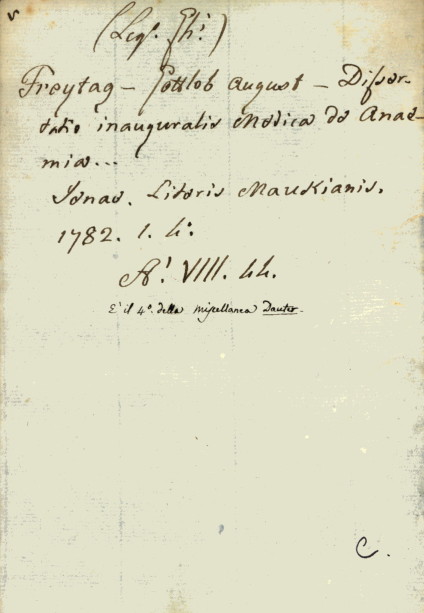 (Leg. Ghi)
Freytag - Gottlob August - Disser-
tatio inauguralis Medica de Anae-
mia...
Jenae. Literis Maukianis.
1782. 1. 4.°
A.' VIII. 44.
E' il 4.° della miscellanea Dauter.
C.